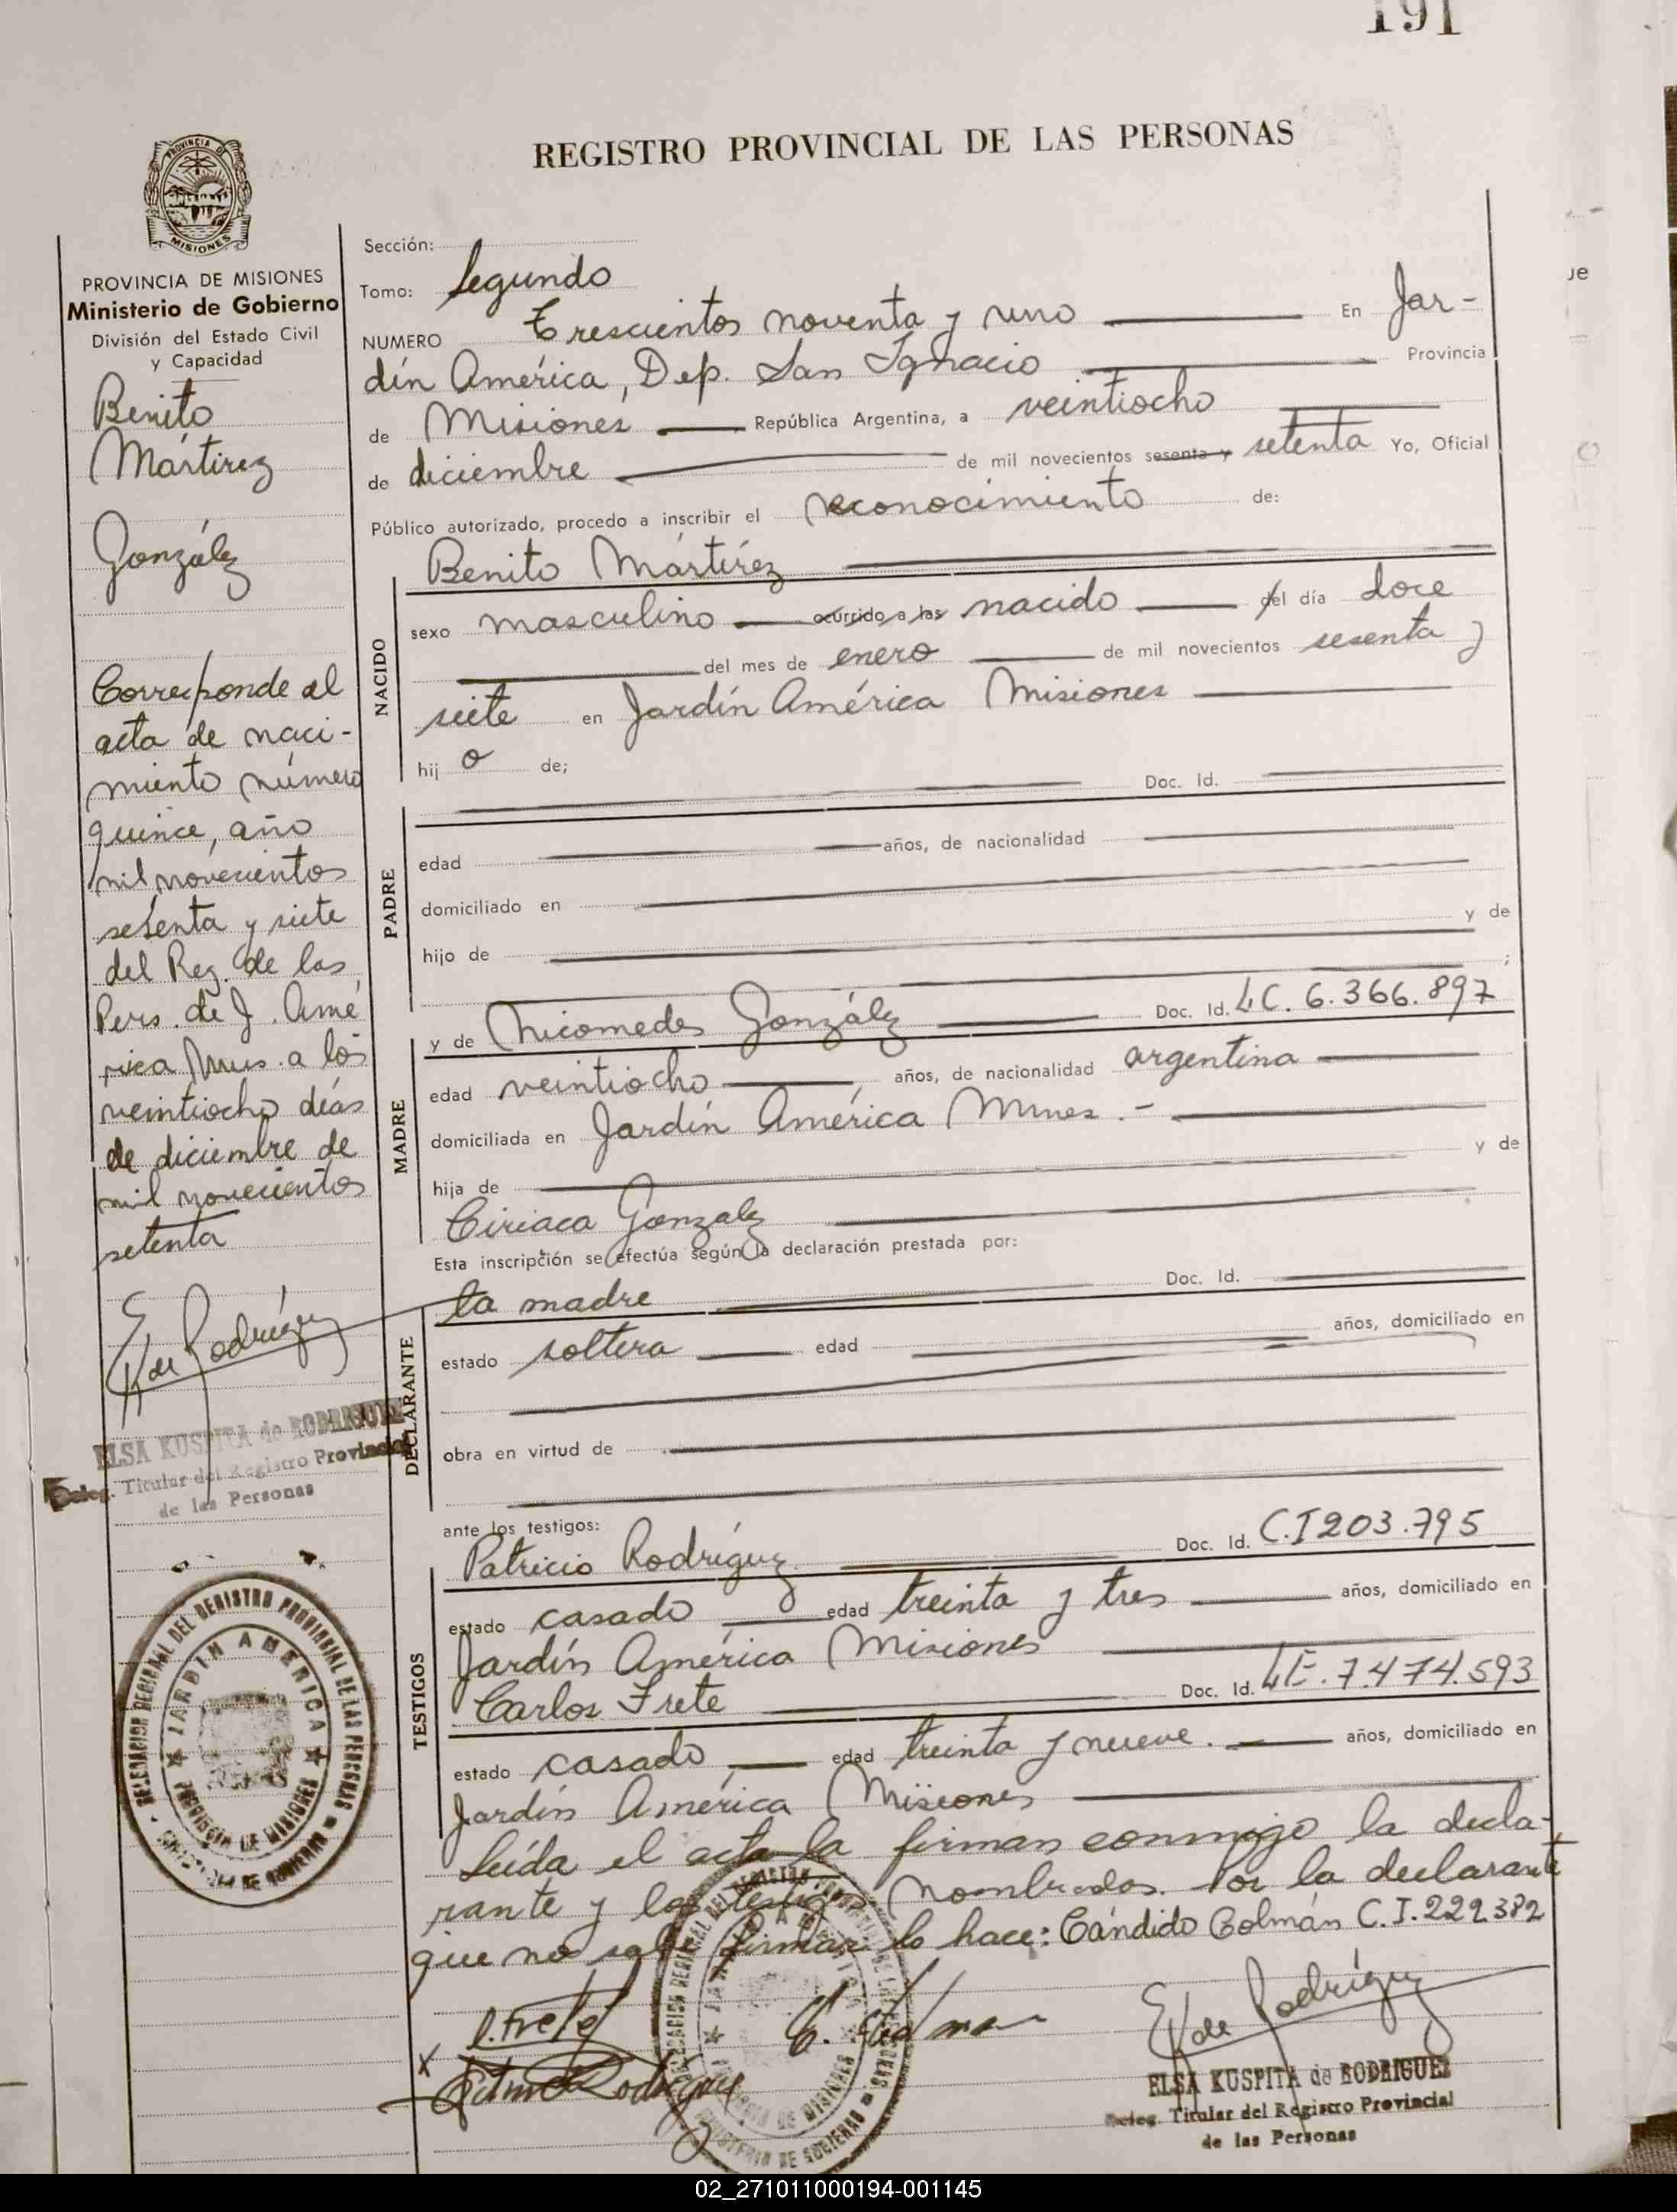 191
REGISTRO PROVINCIAL DE LAS PERSONAS
PROVINCIA DE
MISIONES
PROVINCIA DE MISIONES
Ministerio de Gobierno
División del Estado Civil
y Capacidad
Benito
Mártirez
González
Corresponde al
acta de naci-
miento número
quince, año
mil novecientos
sesenta y siete
del Reg. de las
Pers. de J. Amé
rica Mnes. a los
veintiocho días
de diciembre de
mil novecientos
setenta
E K de Rodríguez
ELSA KUSPITA de RODRIGUEZ
Deleg. Titular del Registro Provincial
de las Personas
DELEGACION REGIONAL DEL REGISTRO PROVINCIAL DE LAS PERSONAS
JARDIN AMERICA
PROVINCIA DE MISIONES
MINISTERIO DE GOBIERNO
Sección:
Tomo: Segundo
NUMERO Trescientos noventa y uno En Jar-
dín América, Dep. San Ignacio Provincia
de Misiones República Argentina, a veintiocho
de diciembre de mil novecientos sesenta y setenta Yo, Oficial
Público autorizado, procedo a inscribir el reconocimiento de:
Benito Mártirez
NACIDO
sexo masculino ocurrido a las nacido del día doce
del mes de enero de mil novecientos sesenta y
siete en Jardín América Misiones
hij o de;
Doc. Id.
PADRE
edad años, de nacionalidad
domiciliado en
hijo de y de
;
y de Nicomedes González Doc. Id. LC. 6.366.897
MADRE
edad veintiocho años, de nacionalidad argentina
domiciliada en Jardín América Mnes.-
hija de y de
Ciriaca Gonzalez
Esta inscripción se efectúa según la declaración prestada por:
la madre Doc. Id.
DECLARANTE
estado soltera edad años, domiciliado en
obra en virtud de
ante los testigos:
Patricio Rodríguez Doc. Id. C.I 203.795
TESTIGOS
estado casado edad treinta y tres años, domiciliado en
Jardín América Misiones
Carlos Frete Doc. Id. LE. 7.474.593
estado casado edad treinta y nueve. años, domiciliado en
Jardín América Misiones
Leída el acta la firman conmigo la decla-
rante y los testigos nombrados. Por la declarante
que no sabe firmar lo hace: Cándido Colmán C.I. 222382
C. Frete
C. Colman
E K de Rodríguez
Rodríguez
DELEGACION REGIONAL DEL REGISTRO PROVINCIAL DE LAS PERSONAS
JARDIN AMERICA
PROVINCIA DE MISIONES
MINISTERIO DE GOBIERNO
ELSA KUSPITA de RODRIGUEZ
Deleg. Titular del Registro Provincial
de las Personas
02_271011000194-001145